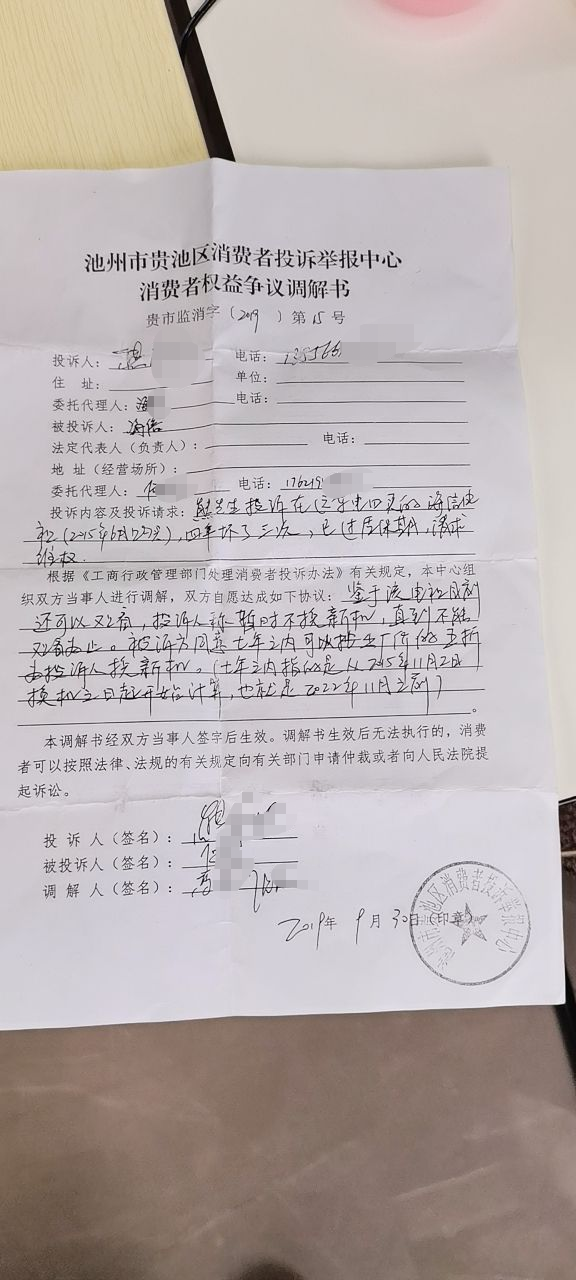 池州市贵池区消费者投诉举报中心
消费者权益争议调解书
贵市监消字〔2019 〕第15号
投诉人： 电话：135566
住 址： 单位：
委托代理人： 电话：
被投诉人：海信
法定代表人（负责人）： 电话：
地 址（经营场所）：
委托代理人： 电话：176219
投诉内容及投诉请求：熊先生投诉在 买的海信电
视（2015年6月 ），四年坏了三次，已过质保期，请求
维权。
根据《工商行政管理部门处理消费者投诉办法》有关规定，本中心组
织双方当事人进行调解，双方自愿达成如下协议：鉴于该电视目前
还可以观看，投诉人称暂时不换新机，直到不能
观看为止。被投诉方同意七年之内可以按出厂价的五折
为投诉人换新机。（七年之内指的是从2015年11月2日
换机之日起开始计算，也就是2022年11月之前）
本调解书经双方当事人签字后生效。调解书生效后无法执行的，消费
者可以按照法律、法规的有关规定向有关部门申请仲裁或者向人民法院提
起诉讼。
投 诉 人（签名）：
被投诉人（签名）：
调 解 人（签名）：
2019年 9月 30日（印章）
池州市贵池区消费者投诉举报中心